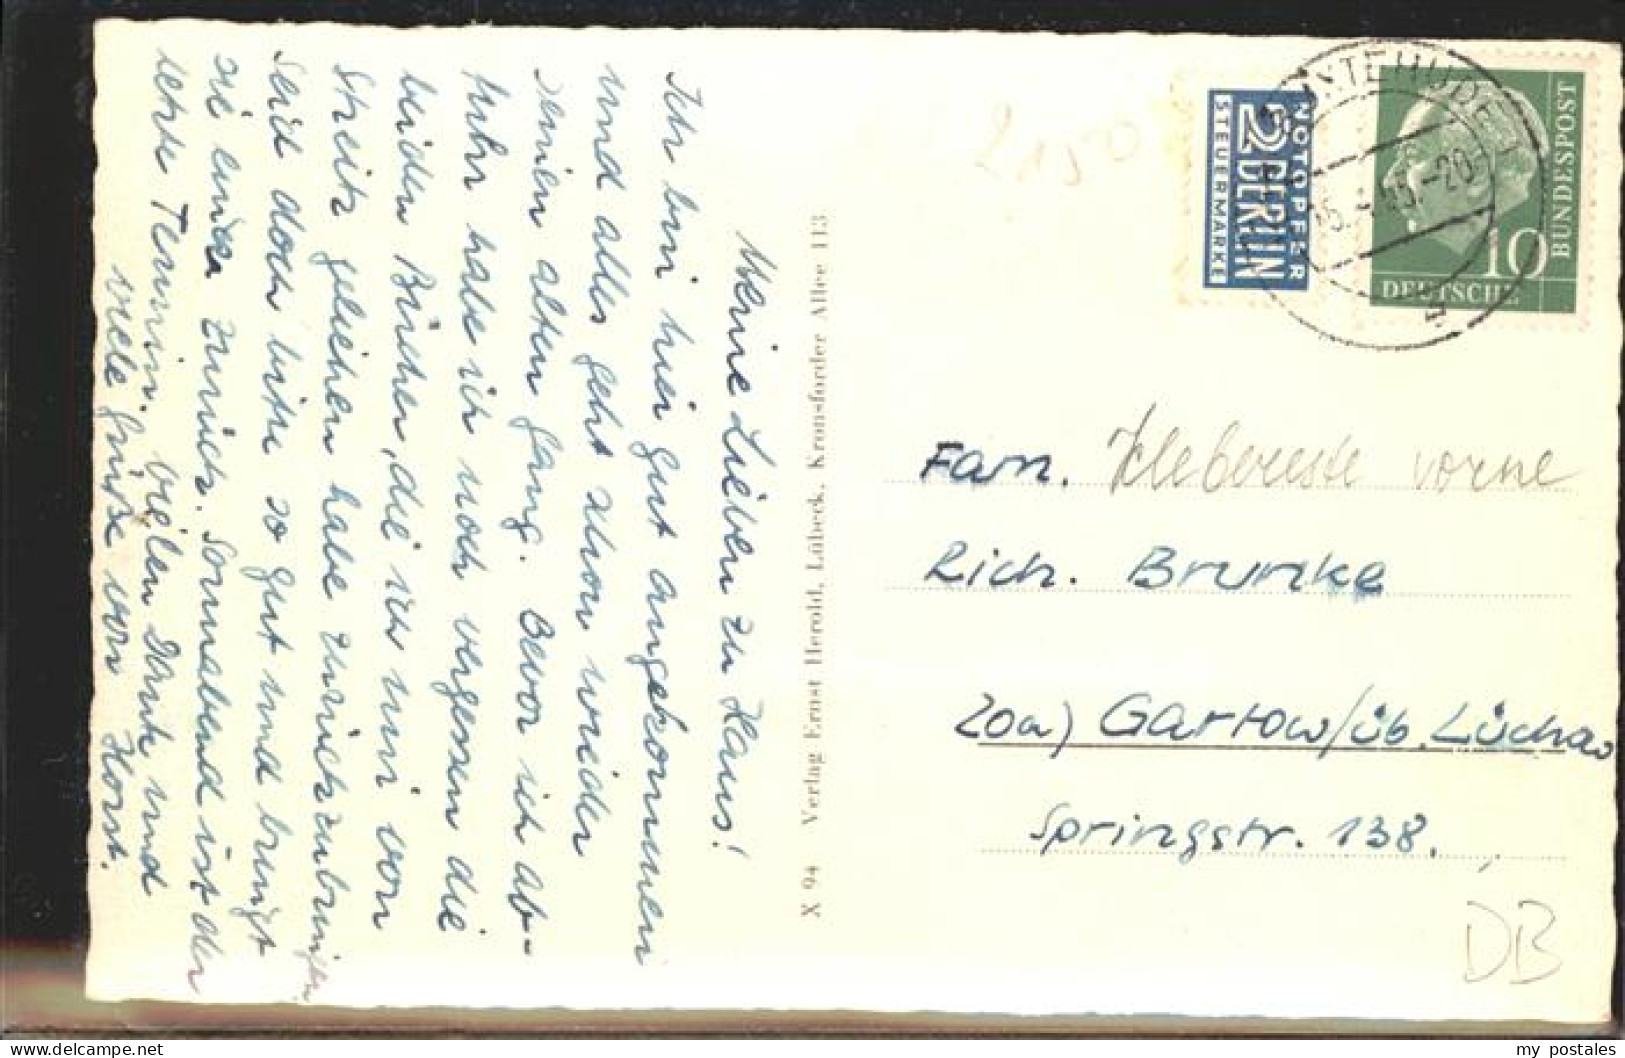 Meine Lieben zu Haus!
Ich bin hier gut angekommen
und alles geht schon wieder
seinen alten Gang. Bevor ich ab-
fuhr habe ich noch vergessen die
beiden Bücher, die ich mir von
Streitz geliehen habe zurückzubringen
Seid doch bitte so gut und bringt
sie wieder zurück. Sonnabend ist der
letzte Termin. Vielen Dank und
viele Grüße von Horst.
X 94 Verlag Ernst Herold, Lübeck, Kronsforder Allee 113
2150
NOTOPFER
2 BERLIN
STEUERMARKE
BUXTEHUDE
-20
10
DEUTSCHE
BUNDESPOST
Fam. Klebereste vorne
Rich. Brunke
20a) Gartow/üb. Lüchow
Springstr. 138.
DB
my postales